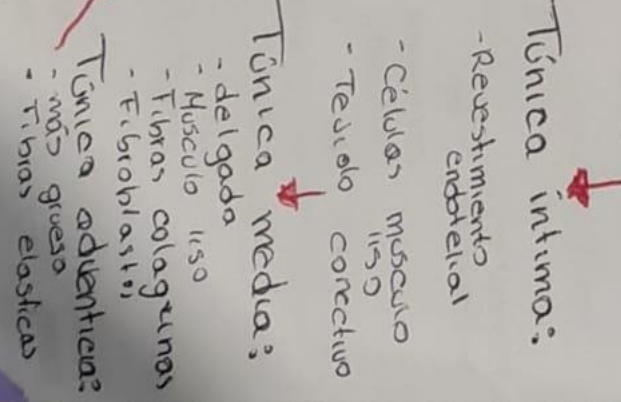 Túnica íntima:
- Revestimiento
endotelial
- Células musculo
liso
- Tejido conectivo
Túnica media:
- delgada
- Musculo liso
- Fibras colagenas
- Fibroblastos
Túnica adventicia:
- más gruesa
- Fibras elasticas